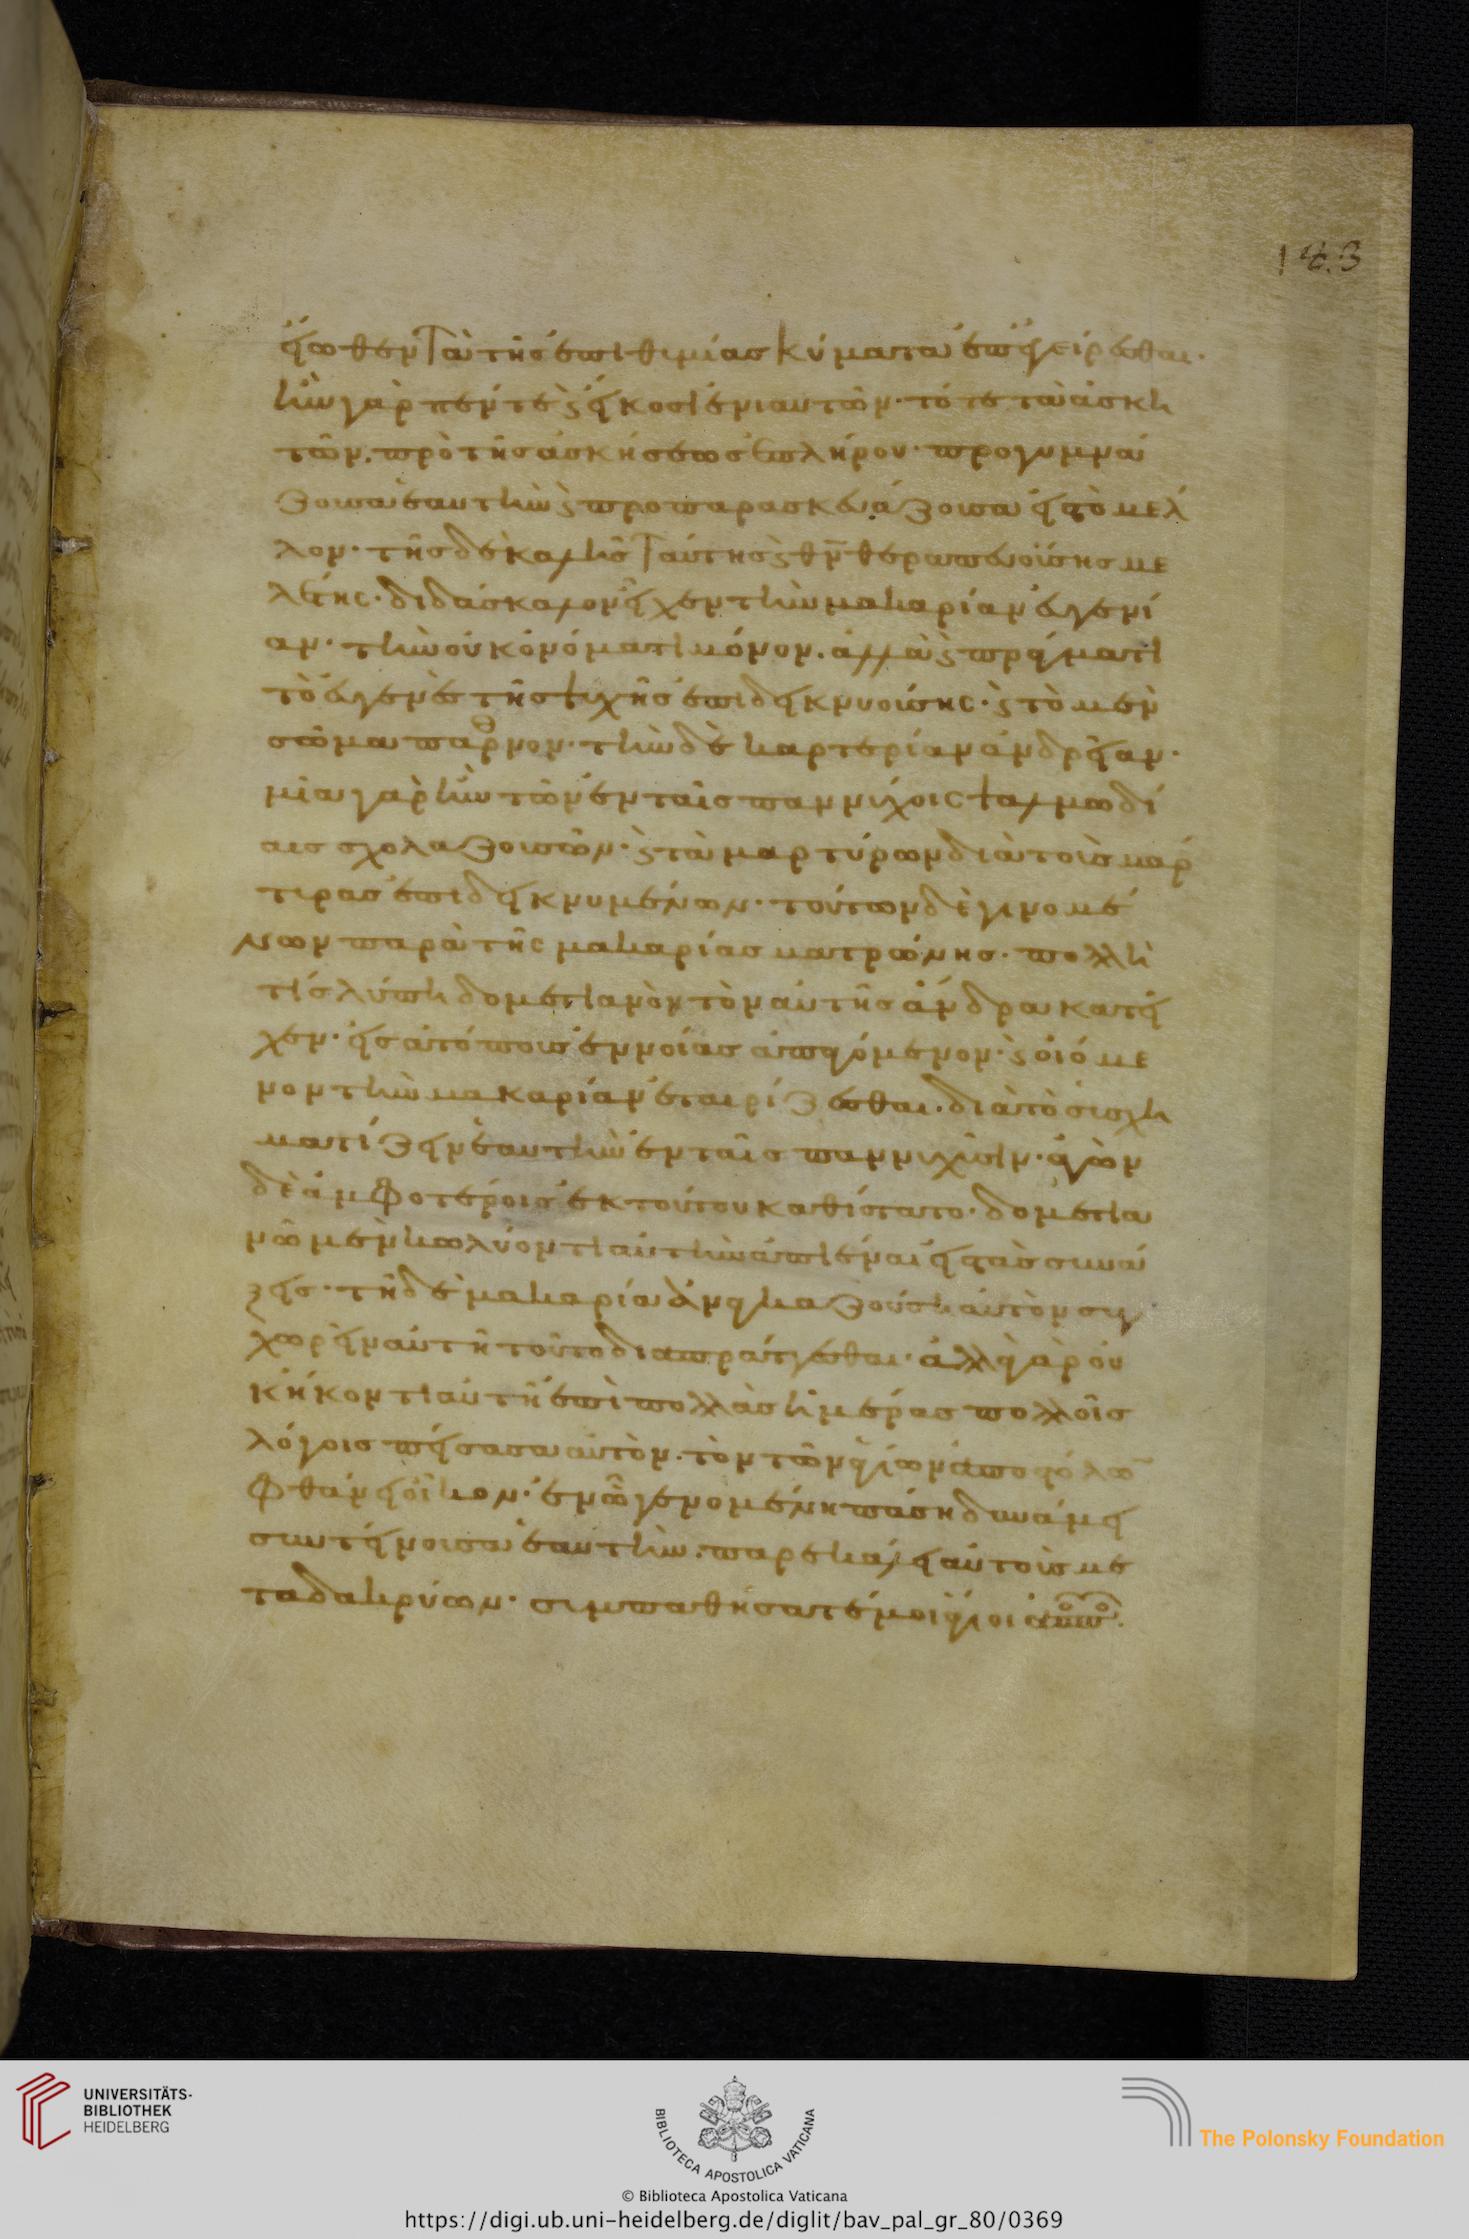 143
εἴωθεν τὰ τῆς ἐπιθυμίας κύματα ἐπεγείρεσθαι·
ἦν γὰρ πέντε καὶ εἴκοσι ἐνιαυτῶν· τότε τὰ ἀσκη
τῶν, πρὸ τῆς ἀσκήσεως ἐπλήρου· προγυμνά
ζουσα ἑαυτὴν καὶ προπαρασκευάζουσα εἰς τὸ μέλ
λον· τῆς δὲ καλῆς ταύτης καὶ θν θεραπευούσης με
λέτης· διδάσκαλον εἶχεν τὴν μακαρίαν εὐγενί
αν· τὴν οὐκ ὀνόματι μόνον, ἀλλὰ καὶ πράγματι
τὸ εὐγενὲς τῆς ψυχῆς ἐπιδεικνυούσης· καὶ τὸ μὲν
σῶμα παρθνον· τὴν δὲ καρτερίαν ἀνδρείαν·
μία γὰρ ἦν τῶν ἐν ταῖς παννύχοις ψαλμωδί
αις σχολαζουσῶν· καὶ τὰ μαρτύρων διὰ τοὺς μάρ
τυρας ἐπιδεικνυμένων· τούτων δὲ γινομέ
νων παρὰ τῆς μακαρίας ματρώνης· πολλή
τις λύπη δομετιανὸν τὸν αὐτῆς ἄνδρα κατεῖ
χεν· εἰς ἀτόπους ἐννοίας ἀπαγόμενον· καὶ οἰόμε
νον τὴν μακαρίαν ἑταιρίζεσθαι· διὰ τὸ συσχη
ματίζειν ἑαυτὴν ἐν ταῖς παννυχίσιν· ἀγὼν
δὲ ἀμφοτέροις ἐκ τούτου καθίστατο· δομετια
νῶ μὲν κωλύοντι αὐτὴν ἀπιέναι εἰς τὰς συνά
ξεις· τῆ δὲ μακαρία ἀναγκαζούση αὐτὸν συγ
χωρεῖν αὐτῆ τοῦτο διαπράττεσθαι· ἀλλὰ γὰρ οὐ
κ ἥκοντι αὐτῆ ἐπὶ πολλὰς ἡμέρας πολλοῖς
λόγοις πείσασα αὐτὸν· τὸν τῶν ἁγίων ἀποστόλων
φθάνει οἶκον· ἐν ὧ γενομένη πάση δυνάμει
συντείνουσα ἑαυτὴν· παρεκάλει αὐτοὺς με
τὰ δακρύων· συμπαθήσατέ μοι ἅγιοι
UNIVERSITÄTS-
BIBLIOTHEK
HEIDELBERG
BIBLIOTECA APOSTOLICA VATICANA
The Polonsky Foundation
© Biblioteca Apostolica Vaticana
https://digi.ub.uni-heidelberg.de/diglit/bav_pal_gr_80/0369